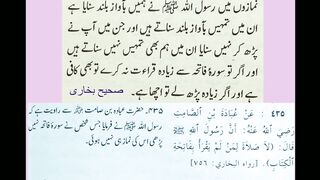 نمازوں میں رسول اللہ ﷺ نے ہمیں بآواز بلند سنایا ہے
ان میں ہم تمہیں بآواز بلند سناتے ہیں اور جن میں آپ نے
پڑھ کر نہیں سنایا ان میں ہم بھی تمہیں نہیں سناتے ہیں
اور اگر تو سورۂ فاتحہ سے زیادہ قراءت نہ کرے تو بھی کافی
ہے اور اگر زیادہ پڑھ لے تو اچھا ہے۔ صحیح بخاری
٤٣٥ : عَنْ عُبَادَةَ بْنِ الصَّامِتِ
رَضِيَ اللَّهُ عَنْهُ: أَنَّ رَسُولَ اللَّهِ ﷺ
قَالَ: (لَا صَلَاةَ لِمَنْ لَمْ يَقْرَأْ بِفَاتِحَةِ
الْكِتَابِ). [رواه البخاري: ٧٥٦]
۴۳۵۔ حضرت عبادہ بن صامت رضی اللہ عنہ سے روایت ہے کہ
رسول اللہ ﷺ نے فرمایا جس شخص نے سورۂ فاتحہ نہیں
پڑھی اس کی نماز ہی نہیں ہوئی۔